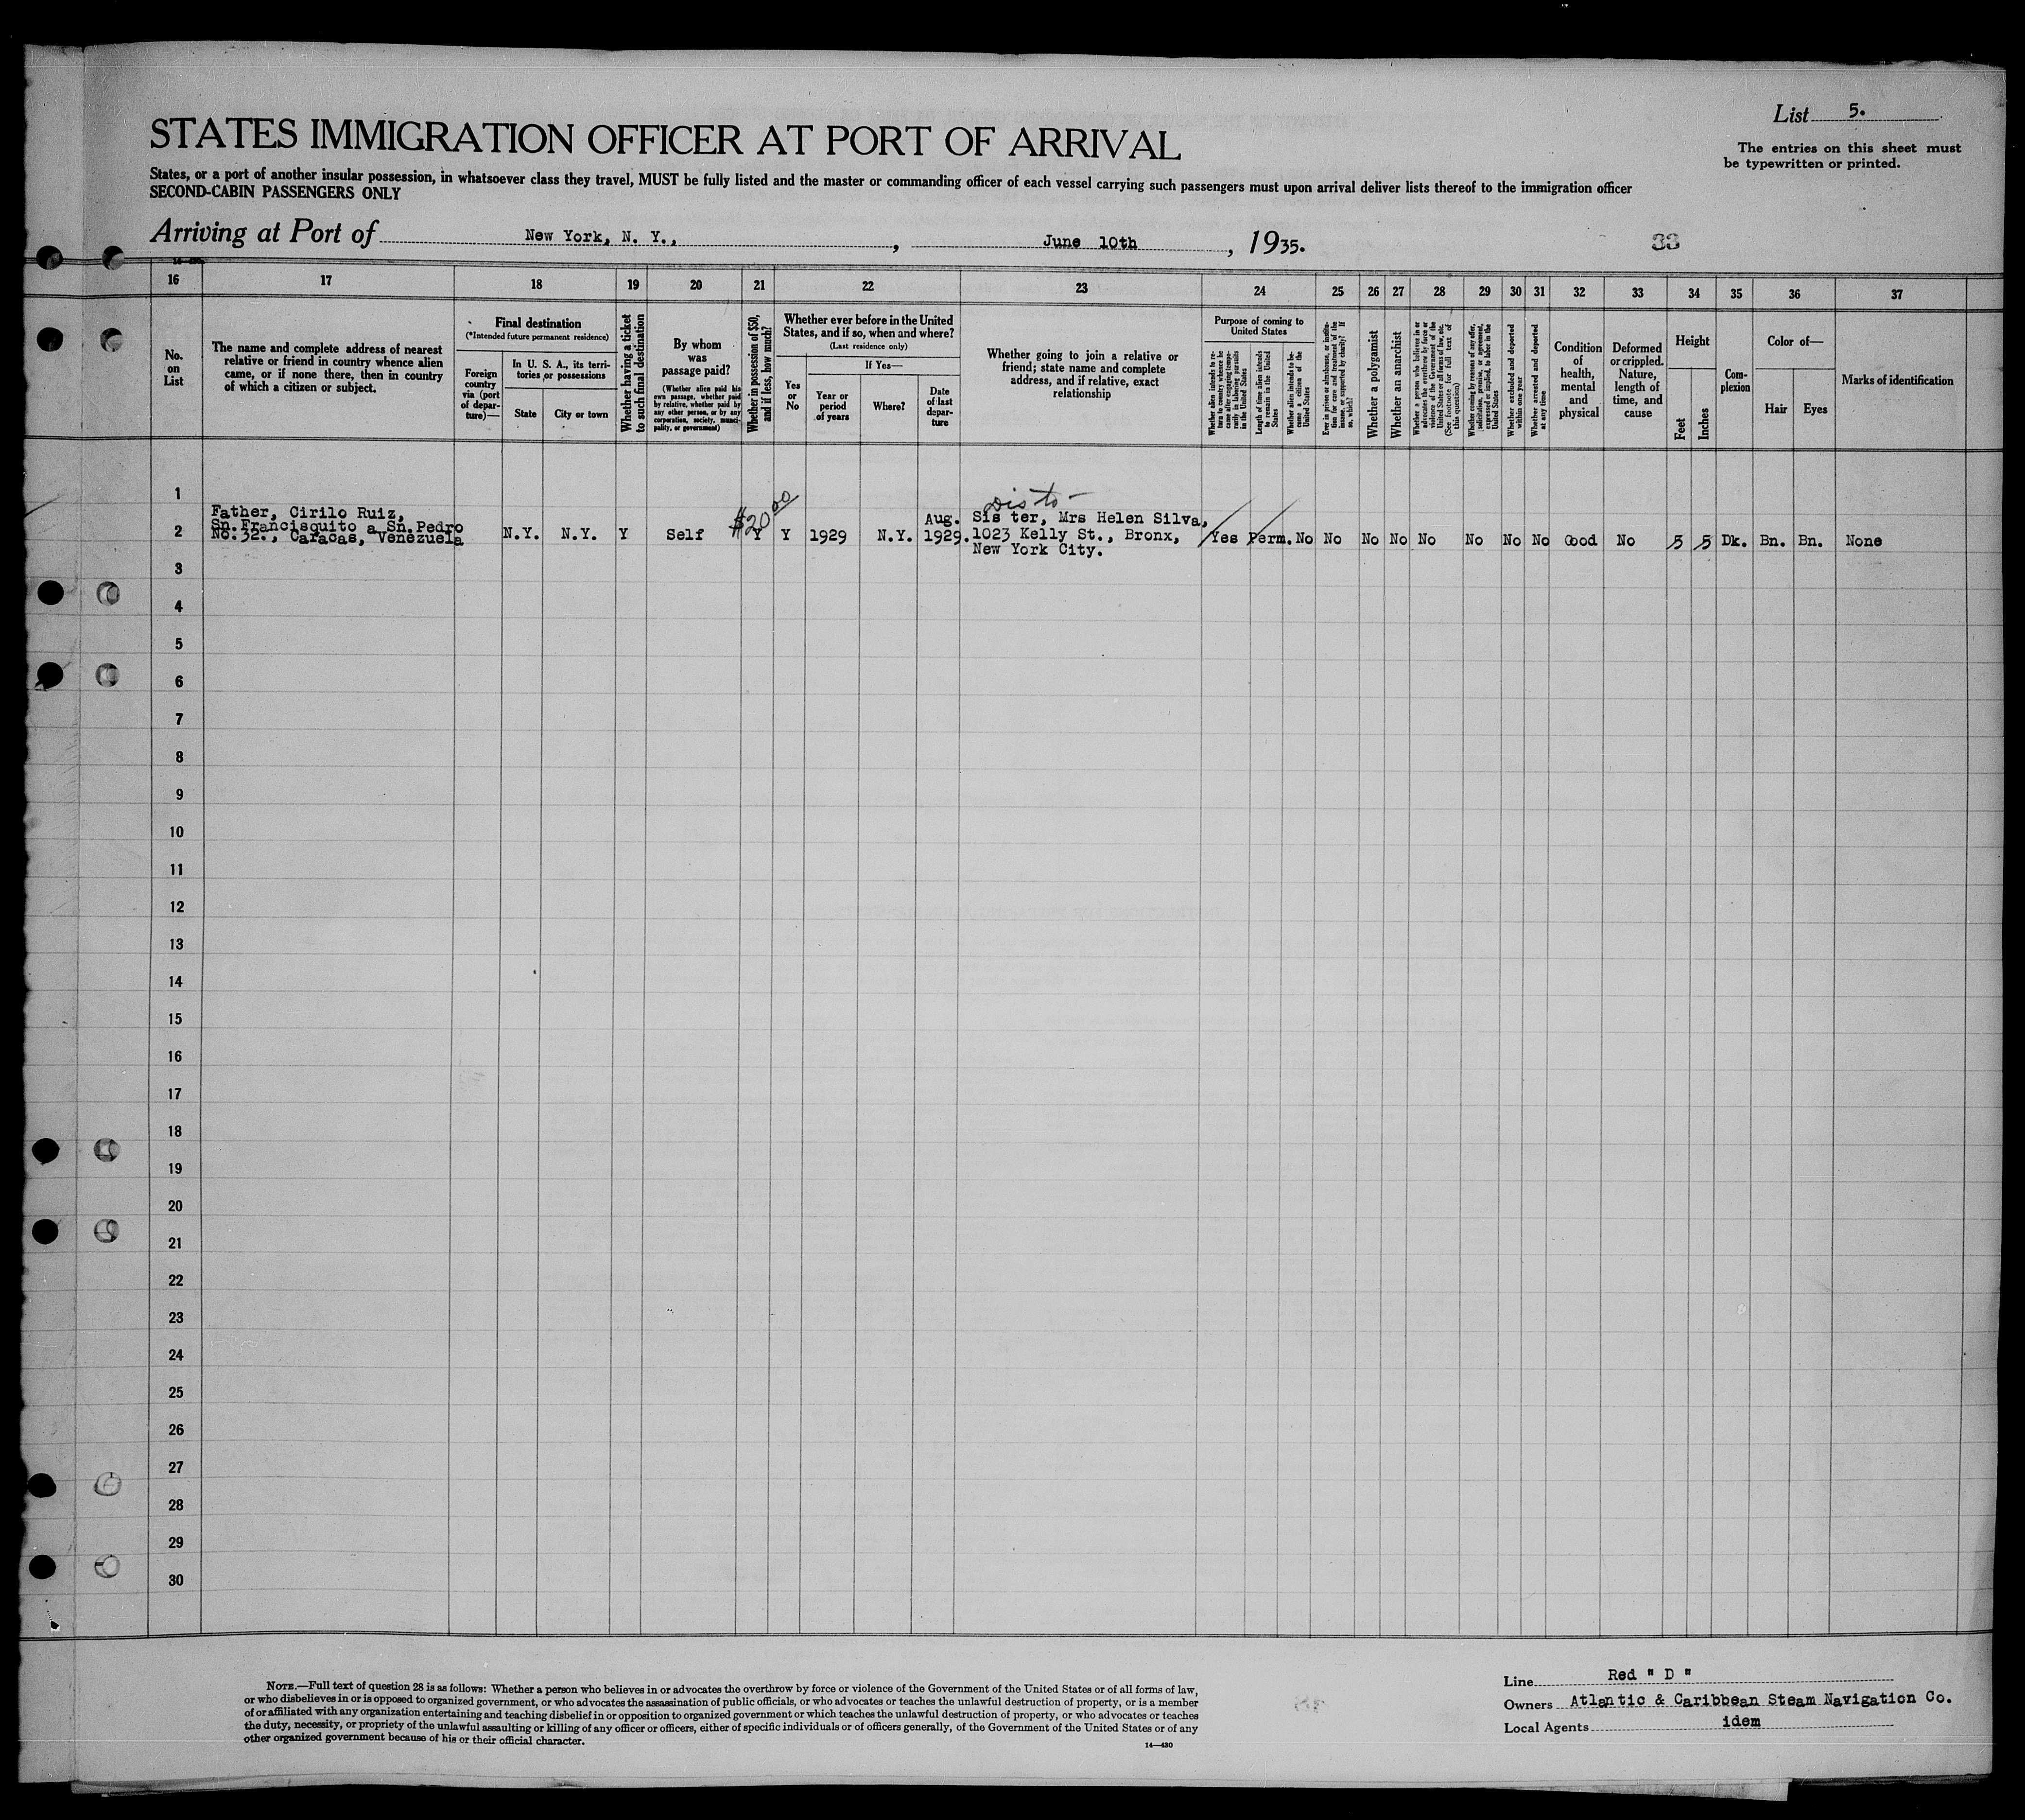 List 5.
STATES IMMIGRATION OFFICER AT PORT OF ARRIVAL
The entries on this sheet must
be typewritten or printed.
States, or a port of another insular possession, in whatsoever class they travel, MUST be fully listed and the master or commanding officer of each vessel carrying such passengers must upon arrival deliver lists thereof to the immigration officer
SECOND-CABIN PASSENGERS ONLY
Arriving at Port of New York, N. Y., , June 10th , 1935.
33
16 17 18 19 20 21 22 23 24 25 26 27 28 29 30 31 32 33 34 35 36 37
No.
on
List
The name and complete address of nearest
relative or friend in country whence alien
came, or if none there, then in country
of which a citizen or subject.
Final destination
(*Intended future permanent residence)
Foreign
country
via (port
of depar-
ture)—
In U. S. A., its terri-
tories or possessions
State
City or town
Whether having a ticket
to such final destination
By whom
was
passage paid?
(Whether alien paid his
own passage, whether paid
by relative, whether paid by
any other person, or by any
corporation, society, munici-
pality, or government)
Whether in possession of $50,
and if less, how much?
Whether ever before in the United
States, and if so, when and where?
(Last residence only)
Yes
or
No
If Yes—
Year or
period
of years
Where?
Date
of last
depar-
ture
Whether going to join a relative or
friend; state name and complete
address, and if relative, exact
relationship
Purpose of coming to
United States
Whether alien intends to re-
turn to country whence he
came after engaging tempo-
rarily in laboring pursuits
in the United States
Length of time alien intends
to remain in the United
States
Whether alien intends to be-
come a citizen of the
United States
Ever in prison or almshouse, or institu-
tion for care and treatment of the
insane, or supported by charity? If
so, which?
Whether a polygamist
Whether an anarchist
Whether a person who believes in or
advocates the overthrow by force or
violence of the Government of the
United States or all forms of law, etc.
(See footnote for full text of
this question)
Whether coming by reason of any offer,
solicitation, promise, or agreement,
expressed or implied, to labor in the
United States
Whether excluded and deported
within one year
Whether arrested and deported
at any time
Condition
of
health,
mental
and
physical
Deformed
or crippled.
Nature,
length of
time, and
cause
Height
Feet
Inches
Com-
plexion
Color of—
Hair
Eyes
Marks of identification
1
Father, Cirilo Ruiz,
Sn. Francisquito a Sn. Pedro
No. 32., Caracas, Venezuela
2
N.Y. N.Y. Y Self $20.00 Y Y 1929 N.Y.
Aug.
1929.
Dis to —
Sis ter, Mrs Helen Silva,
1023 Kelly St., Bronx,
New York City.
Yes Perm. No No No No No No No No Good No 5 5 Dk. Bn. Bn. None
3
4
5
6
7
8
9
10
11
12
13
14
15
16
17
18
19
20
21
22
23
24
25
26
27
28
29
30
NOTE.—Full text of question 28 is as follows: Whether a person who believes in or advocates the overthrow by force or violence of the Government of the United States or of all forms of law,
or who disbelieves in or is opposed to organized government, or who advocates the assassination of public officials, or who advocates or teaches the unlawful destruction of property, or is a member
of or affiliated with any organization entertaining and teaching disbelief in or opposition to organized government or which teaches the unlawful destruction of property, or who advocates or teaches
the duty, necessity, or propriety of the unlawful assaulting or killing of any officer or officers, either of specific individuals or of officers generally, of the Government of the United States or of any
other organized government because of his or their official character.
14—430
Line Red " D "
Owners Atlantic & Caribbean Steam Navigation Co.
Local Agents idem